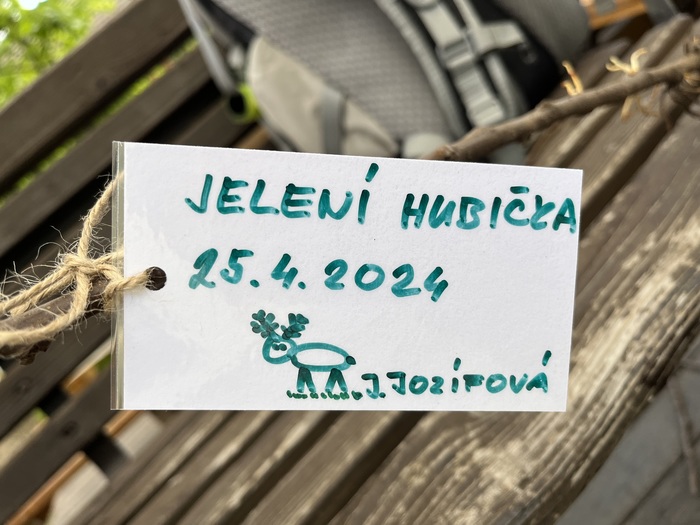 JELENÍ HUBIČKA
25.4.2024
J.JOZÍFOVÁ